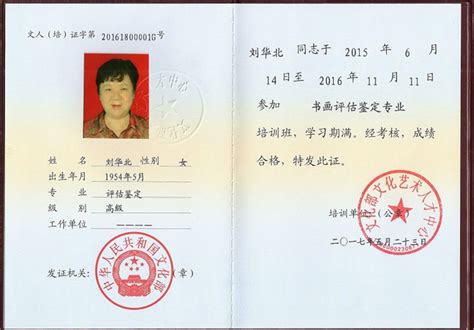 文人（培）证字第20161800001G号
姓名 刘华北 性别 女
出生年月 1954年5月
专业 评估鉴定
级别 高级
工作单位 ————
发证机关：（章）
中华人民共和国文化部
刘华北 同志于 2015 年 6 月
14 日至 2016 年 11 月 11 日
参加 书画评估鉴定专业
培训班，学习期满。经考核，成绩
合格，特发此证。
培训单位（公章）
文化部文化艺术人才中心
二〇一七年五月二十三日